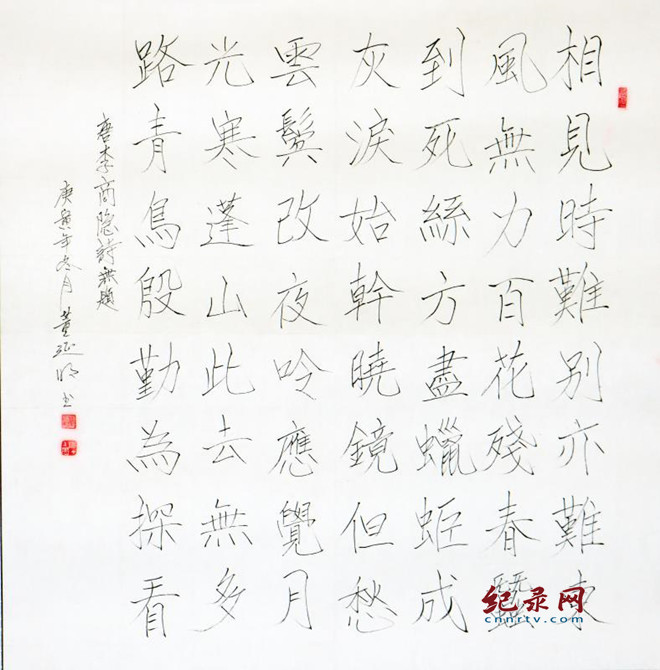 相見時難別亦難東
風無力百花殘春蠶
到死絲方盡蠟蚷成
灰淚始幹曉鏡但愁
雲鬢改夜吟應覺月
光寒蓬山此去無多
路青鳥殷勤為探看
唐李商隐詩無題
庚寅年冬月董延明书
纪录网
cnnrtv.com